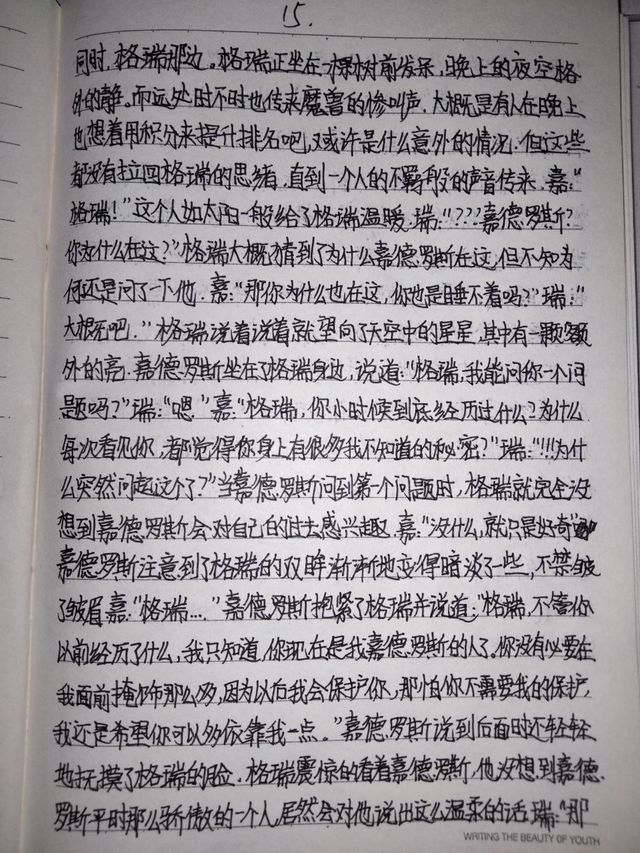 15.
同时，格瑞那边。格瑞正坐在一棵树前发呆，晚上的夜空格
外的静。而远处时不时也传来魔兽的惨叫声，大概是有人在晚上
也想着用积分来提升排名吧，又或许是什么意外的情况。但这些
都没有拉回格瑞的思绪，直到一个人的不羁般的声音传来，嘉：“
格瑞！”这个人如太阳一般给了格瑞温暖。瑞：“？？？嘉德罗斯？
你为什么在这？”格瑞大概猜到了为什么嘉德罗斯在这，但不知为
何还是问了一下他。嘉：“那你为什么也在这，你也是睡不着吗？”瑞：“
大概吧。”格瑞说着说着就望向了天空中的星星，其中有一颗额
外的亮。嘉德罗斯坐在了格瑞身边，说道：“格瑞，我能问你一个问
题吗？”瑞：“嗯”嘉“格瑞，你小时候到底经历过什么？为什么
每次看见你，都觉得你身上有很多我不知道的秘密？”瑞：“！！！为什
么突然问起这个了？”当嘉德罗斯问到第一个问题时，格瑞就完全没
想到嘉德罗斯会对自己的过去感兴趣。嘉：“没什么，就只是好奇”
嘉德罗斯注意到了格瑞的双眸渐渐地变得暗淡了一些，不禁皱
了皱眉嘉：“格瑞...”嘉德罗斯抱紧了格瑞并说道：“格瑞，不管你
以前经历了什么，我只知道，你现在是我嘉德罗斯的人了。你没有必要在
我面前掩饰那么多，因为以后我会保护你，那怕你不需要我的保护，
我还是希望你可以多依靠我一点。”嘉德罗斯说到后面时还轻轻
地抚摸了格瑞的脸。格瑞震惊的看着嘉德罗斯，他没想到嘉德
罗斯平时那么骄傲的一个人，居然会对他说出这么温柔的话。瑞：“那
WRITING THE BEAUTY OF YOUTH